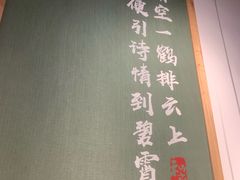 空一鹤排云上
便引诗情到碧霄